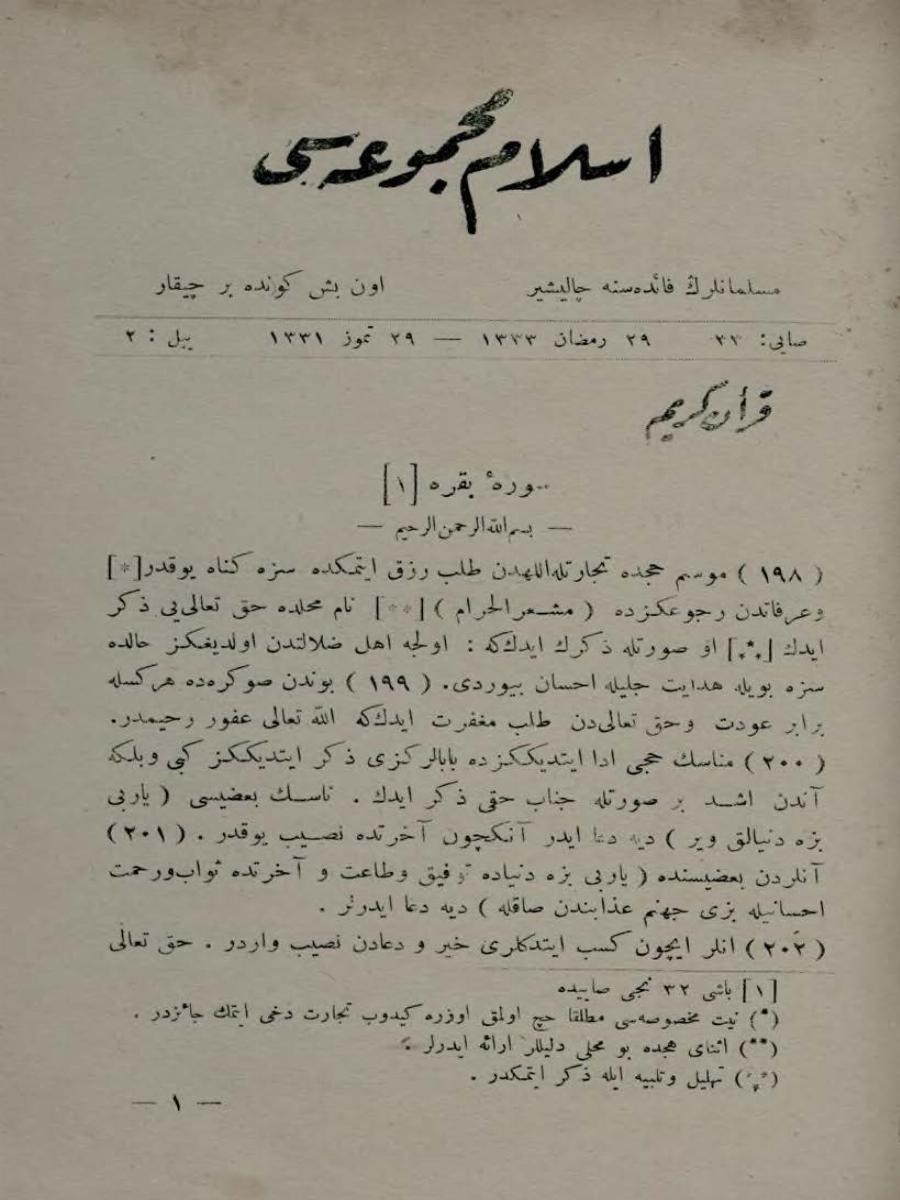 اسلام مجموعه‌سی
مسلمانلرڭ فائده‌سنه چالیشیر اون بش كونده بر چیقار
صایی: ٣٣ ٢٩ رمضان ١٣٣٣ — ٢٩ تموز ١٣٣١ ییل : ٢
قرأن كریم
سورۀ بقره [١]
— بسم الله الرحمن الرحیم —
( ١٩٨ ) موسم حجده تجارتله اللهدن طلب رزق ایتمكده سزه كناه یوقدر[*]
وعرفاتدن رجوعكزده ( مشعر الحرام ) [**] نام محلده حق تعالی‌یی ذكر
ایدك [***] او صورتله ذكرك ایدك‌كه : اولجه اهل ضلالتدن اولدیغكز حالده
سزه بویله هدایت جلیله احسان بیوردی. ( ١٩٩ ) بوندن صوكره‌ده هركسله
برابر عودت وحق تعالی‌دن طلب مغفرت ایدك‌كه الله تعالی غفور رحیمدر.
( ٢٠٠ ) مناسك حجی ادا ایتدیككزده بابالركزی ذكر ایتدیككز كبی وبلكه
آندن اشد بر صورتله جناب حقی ذكر ایدك . ناسك بعضیسی ( یاربی
بزه دنیالق ویر ) دیه دعا ایدر آنكچون آخرتده نصیب یوقدر . ( ٢٠١ )
آنلردن بعضیسنده ( یاربی بزه دنیاده توفیق وطاعت و آخرتده ثواب‌ورحمت
احسانیله بزی جهنم عذابندن صاقله ) دیه دعا ایدرلر .
( ٢٠٢ ) انلر ایچون كسب ایتدكلری خیر و دعادن نصیب واردر . حق تعالی
[١] باشی ٣٢ نجی صاییده
(*) نیت مخصوصه‌سی مطلقا حج اولمق اوزره كیدوب تجارت دخی ایتمك جائزدر .
(**) اثنای حجده بو محلی دلیللر ارائه ایدرلر .
(***) تهلیل وتلبیه ایله ذكر ایتمكدر .
— ١ —